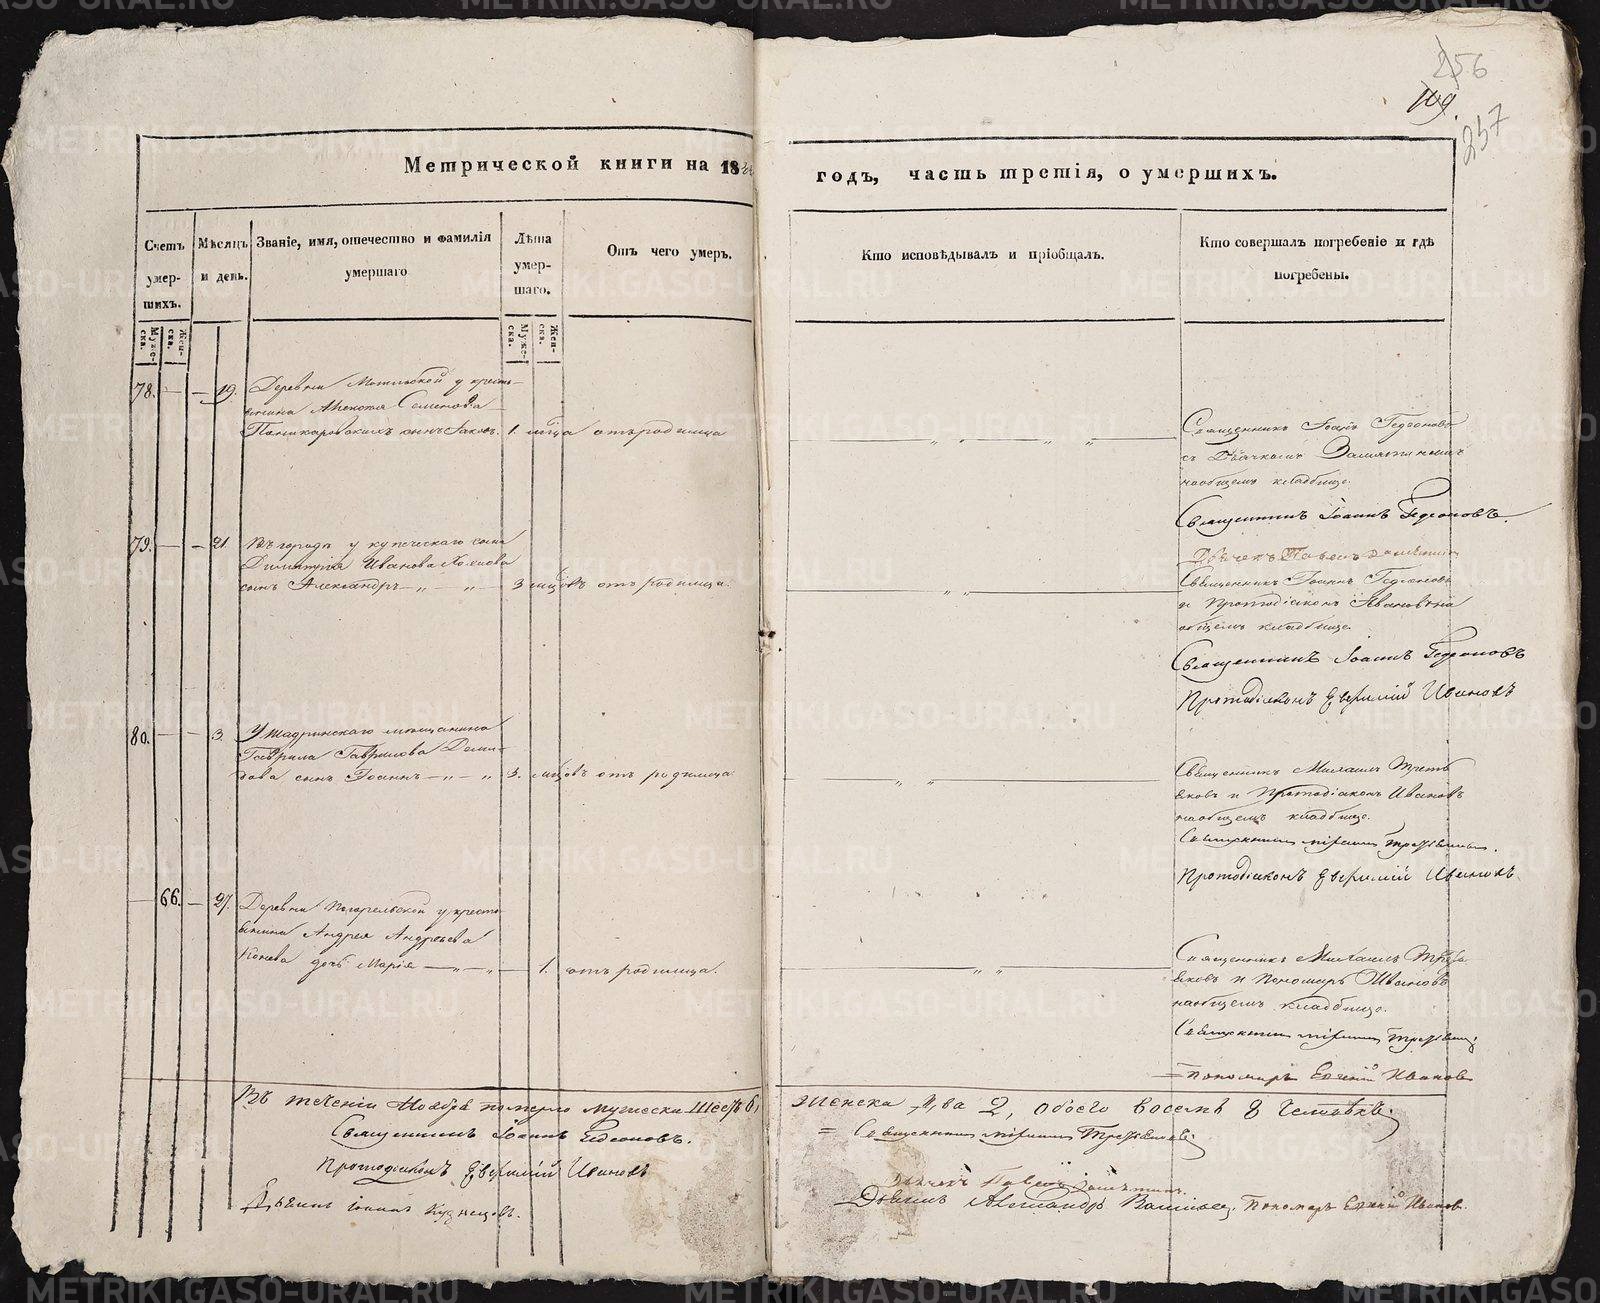 256
109.
257
Метрической книги на 18
годъ, часть третія, о умершихъ.
Счетъ умер-шихъ.
Мѣсяцъ и день.
Званіе, имя, отечество и фамилія умершаго
Лѣта умер-шаго.
Отъ чего умеръ.
Кто исповѣдывалъ и пріобщалъ.
Кто совершалъ погребеніе и гдѣ погребены.
Муже-ска.
Жен-ска.
Муже-ска.
Жен-ска.
78. — — 19. Деревни у кресть-
янина Семенова
сынъ Іаковъ. 1. мѣсца отъ родимца
Священникъ Іоаннъ Гедеоновъ
съ Дьячкомъ Замятинымъ
наобщемъ кладбище.
Священникъ Іоаннъ Гедеоновъ.
Дьячекъ Павелъ Замятинъ
79. — — 21. Въ городѣ у купеческаго сына
Димитрія Иванова
сынъ Александръ — „ — „ — 3 мѣсцовъ отъ родимца.
Священникъ Іоаннъ Гедеоновъ
и Протодіаконъ Ивановъ на
общемъ кладбище.
Священникъ Іоаннъ Гедеоновъ
Протодіаконъ Евфимій Ивановъ
80. — — 3. У шадринскаго мѣщанина
Гаврила Гаврилова Деми-
дова сынъ Іоаннъ — „ — „ 3. мѣсцовъ отъ родимца.
Священникъ Михаилъ Треть-
яковъ и Протодіаконъ Ивановъ
наобщемъ кладбище.
Священникъ Михаилъ Третьяковъ.
Протодіаконъ Евфимій Ивановъ.
— 66. — 27. Деревни Погорельской у кресть-
янина Андрея Андреева
Конева дочь Марія — „ — „ — 1. отъ родимца.
Священникъ Михаилъ Треть-
яковъ и Пономарь Ивановъ
наобщемъ кладбище.
Священникъ Михаилъ Третьяковъ
Пономарь Ивановъ
Въ теченіи Ноября померло мужеска Шесть 6,
женска Два 2, обоего восемь 8 человѣкъ.
Священникъ Іоаннъ Гедеоновъ.
Священникъ Михаилъ Третьяковъ.
Протодіаконъ Евфимій Ивановъ
Дьячекъ Павелъ Замятинъ.
Кузнецовъ.
Александръ Пономарь Ивановъ.
METRIKI.GASO-URAL.RU